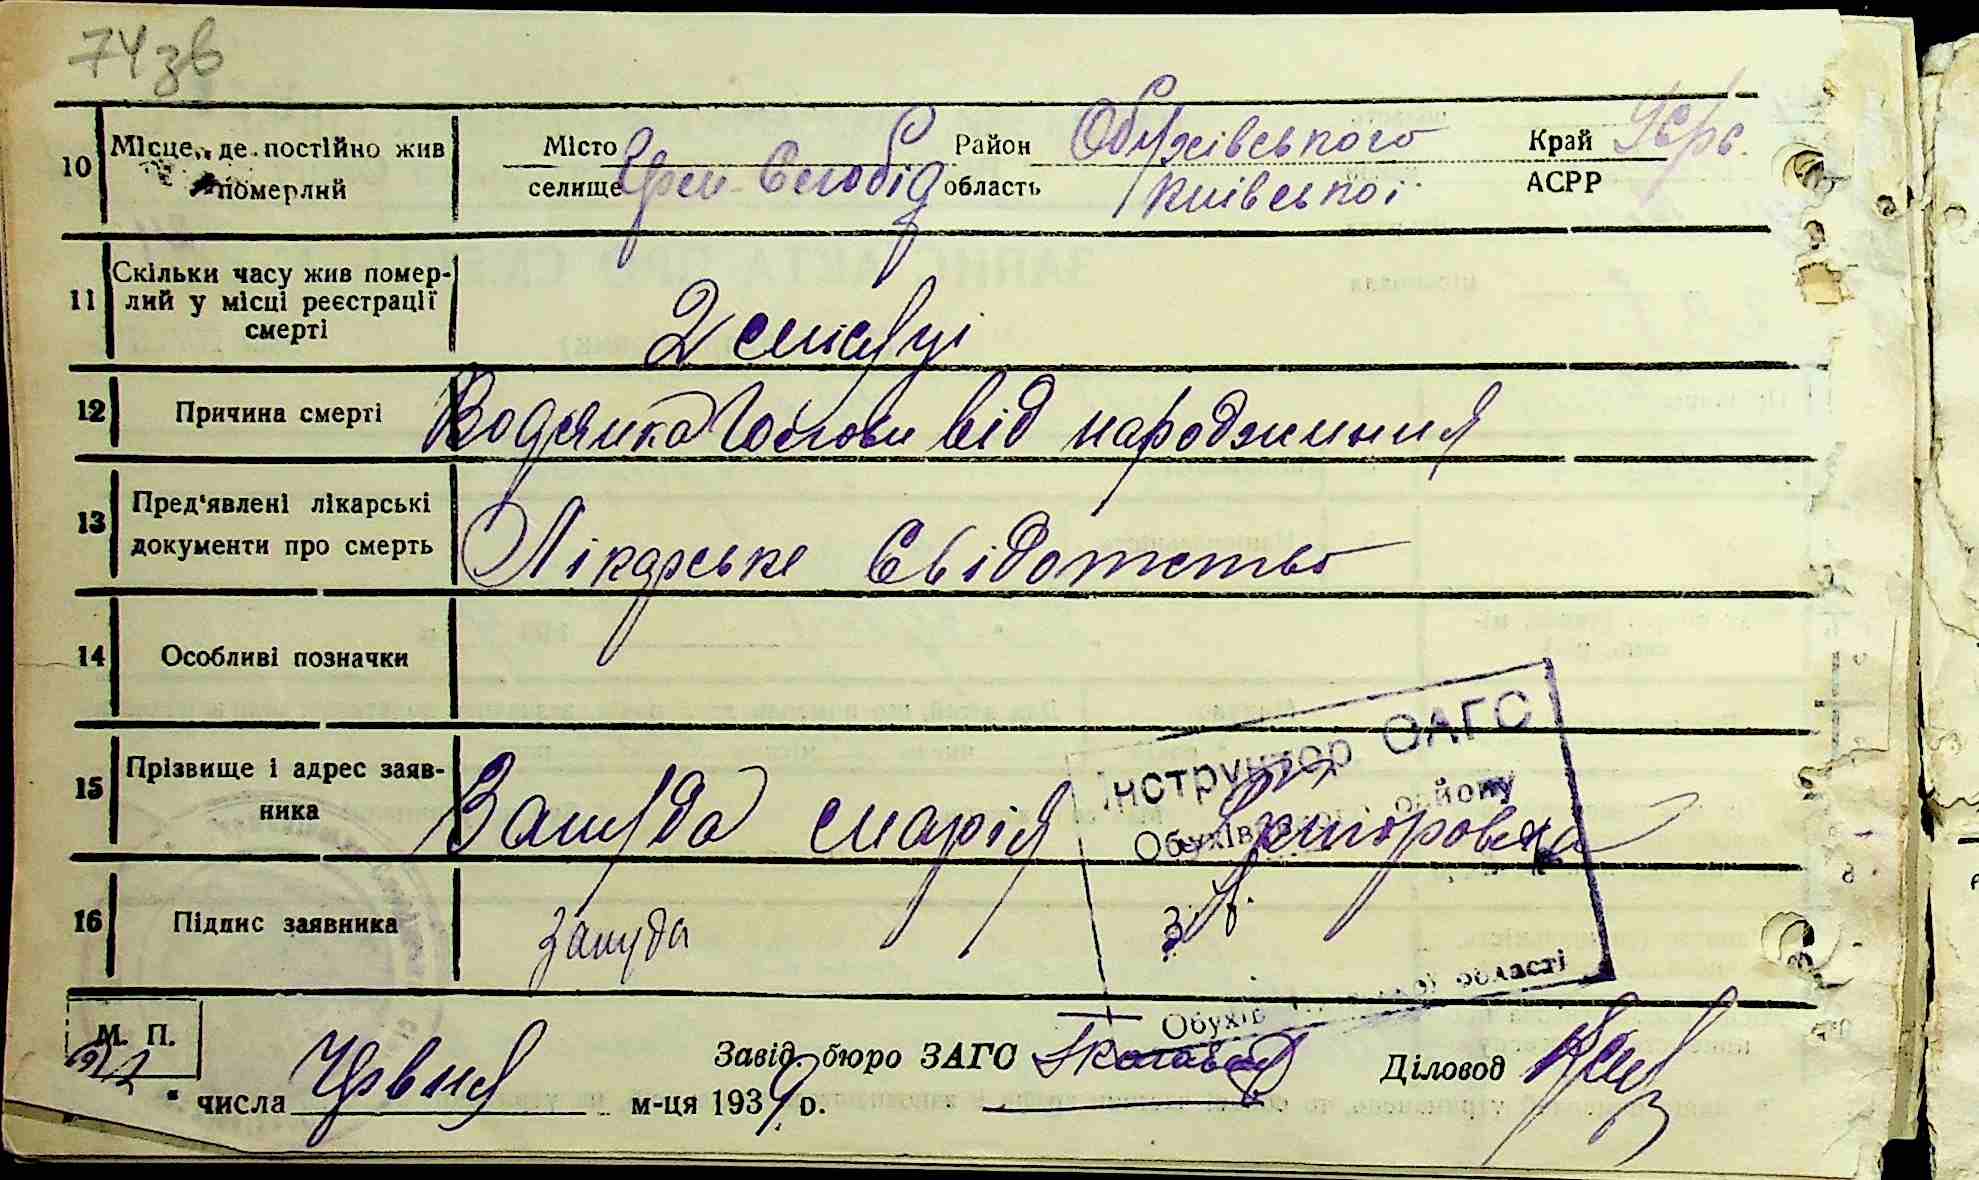 74зв
10 Місце, де постійно жив померлий Місто селище Слобід Район Обухівського область Київської Край АСРР Усрс
11 Скільки часу жив померлий у місці реєстрації смерті 2 місяці
12 Причина смерті Водянка Голови від народжиния
13 Пред'явлені лікарські документи про смерть Лікарське Свідотство
14 Особливі позначки
15 Прізвище і адрес заявника Зануда Марія Григоровна
Інструктор ОАГС
Обухівського району
Обухів області
16 Підпис заявника Зануда
М. П.
числа Червня м-ця 1939 р. Завід. бюро ЗАГС Діловод